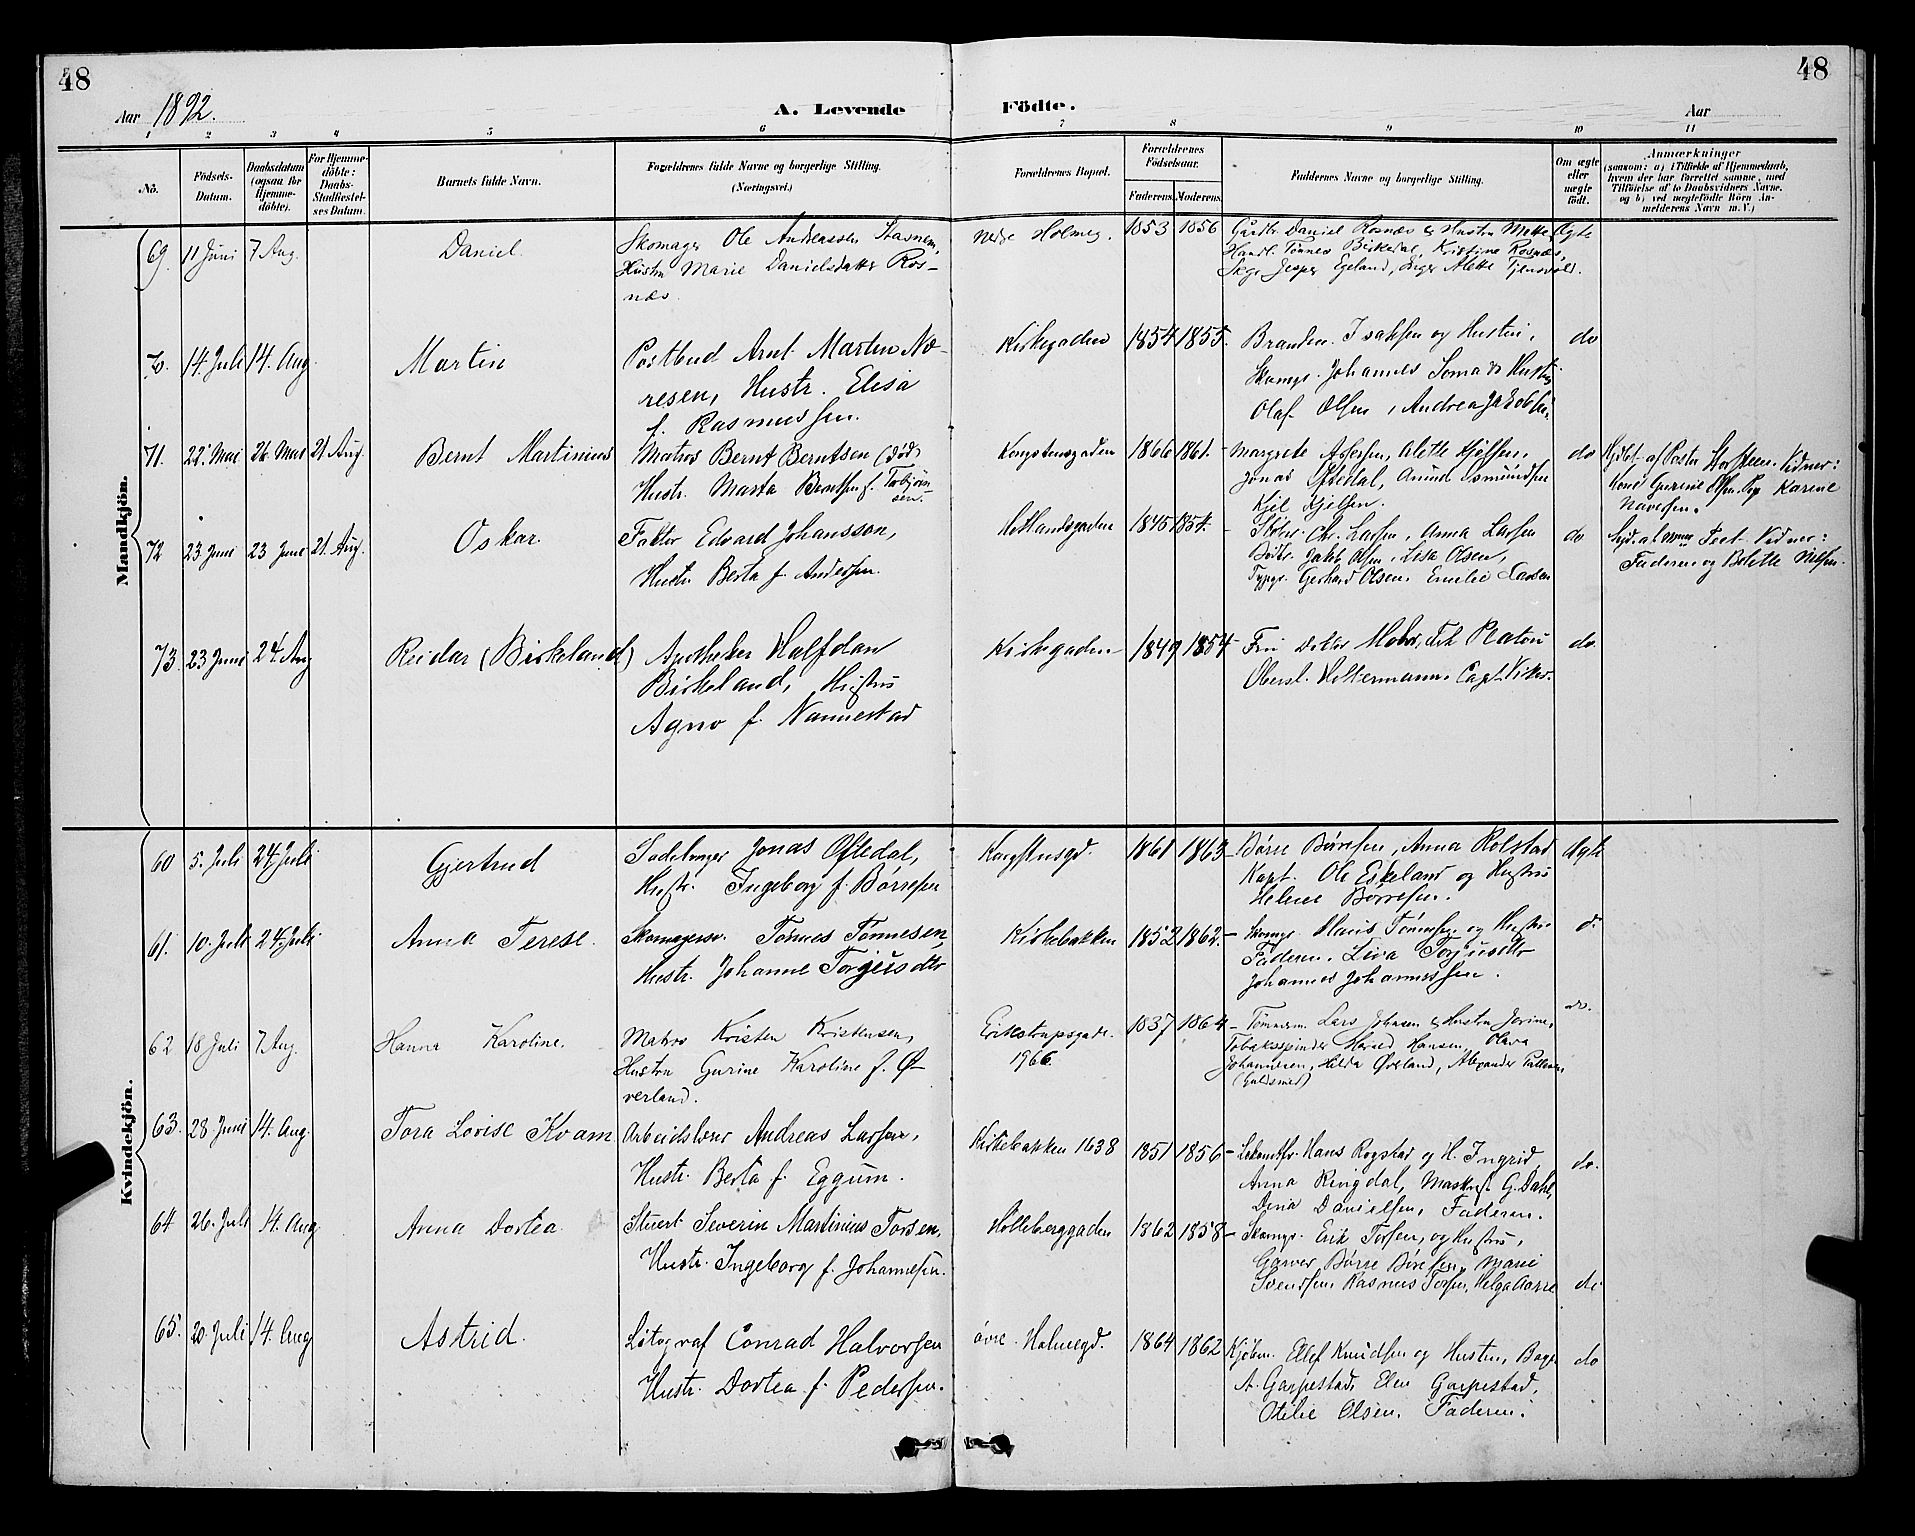 48
48
Aar 1892.
A. Levende Födte.
Aar
1 2 3 4 5 6 7 8 9 10 11
No.
Födsels-
Datum.
Daabsdatum
(ogsaa for
Hjemme-
döbte).
For Hjemme-
döbte:
Daabs-
Stadfæstel-
ses Datum.
Barnets fulde Navn.
Forældrenes fulde Navne og borgerlige Stilling.
(Næringsvei.)
Forældrenes Bopæl.
Forældrenes
Födselsaar.
Faderens. Moderens.
Faddernes Navne og borgerlige Stilling.
Om ægte
eller
uægte
födt.
Anmærkninger
(saasom: a) i Tilfælde af Hjemmedaab,
hvem der har forrettet samme, med
Tilföielse af to Daabsvidners Navne,
og b) ved uægtefödte Börn An-
melderens Navn m. V.)
Mandkjön.
69. 11 Juni 7 Aug. Daniel.
Skomager Ole Andreassen
Hustru Marie Danielsdatter Ros-
næs.
Nedre Holmeg. 1853 1856
Gårdbr. Daniel Rosnæs & Hustru Mette,
Handl. Tönnes Birkedal, Kristine Rosnæs,
Jesper Egeland, Alette Tjensvold.
Ægte
70. 14. Juli 14. Aug. Martin
Postbud Arnt Martin No-
resen, Hustr. Elisa
f. Rasmussen.
Kirkegaden 1854 1855.
Isaksen og Hustru,
Skomgr. Johannes Soma & Hustru
Olaf Olsen, Andrea Jakobsen.
do
71. 22. Mai 26. Mai 21 Aug. Bernt Martinius
Matros Bernt Berntsen (död)
Hustr. Marta Berntsen f. Torbjörn-
sen.
Kongstensgaden 1866 1861.
Margrete Assersen, Alette
Jonas Oftedal, Amund Osmundsen
Kjel Kjelsen.
do
Hjdbt. af Pastor Vidner:
Kone Gurine Olsen og Karine
72 23 Juni 23 Juni 21. Aug. Oskar.
Faktor Edvard Johansson,
Hustr Berta f. Andersen.
Hetlandsgaden 1845 1854.
Chr. Larsen, Anna Larsen
Bödkr. Jakob Olsen, Lisa Olsen,
Typgr. Gerhard Olsen, Emilie Larsen
do
Hjd. af Vidner:
Faderen og Bolette Nilsen.
73. 23 Juni 24. Aug Reidar (Birkeland)
Apotheker Halfdan
Birkeland, Hustru
Agno f. Nannestad
Kirkegaden 1849 1854
Fru Doktor Frk Platou
Oberstl. Capt.
do.
Kvindekjön.
60 5. Juli 24. Juli Gjertrud
Sadelmager Jonas Oftedal,
Hustr. Ingeborg f. Börresen
Kongstensgd. 1861 1863
Börre Börresen, Anna Rolstad
Kapt. Ole Eskeland og Hustru
Helene Börresen.
Ægte
61. 10. Juli 24. Juli Anna Terese.
Skomagersv. Tönnes Tönnesen,
Hustr. Johanne Torjeusdtr
Kirkebakken 1852 1862.
Skomgr. Hans Tönnesen og Hustru
Faderen. Liva Torjusdtr
Johannes Johannessen.
do
62 18 Juli 7 Aug. Hanna Karoline.
Matros Kristen Kristensen,
Hustru Gurine Karoline f. Ö-
verland.
Erikstrupsgade.
1966.
1837 1864
Tömmerm. Lars Johnsen & Hustru Jorine,
Tobaksspinder Harald Hansen, Olava
Johannesen, Hilda Överland, Alexander
(Guldsmed)
do.
63. 28. Juni 14. Aug. Tora Lovise Kvam
Arbeidsfor Andreas Larsen,
Hustr. Berta f. Eggum.
Kirkebakken 1638 1851 1856
Hans Rogstad og H. Ingrid,
Anna Ringdal, G. Dahl,
Dina Danielsen, Faderen.
do.
64 26. Juli 14. Aug Anna Dortea
Stuert Severin Martinius Torsen,
Hustr. Ingeborg f. Johannesen.
Holleberggaden 1862 1858
Skomgr. Erik Torsen, og Hustru,
Garver Börre Börresen, Marie
Svendsen, Rasmus Torsen, Helga Aarre
do
65. 20. Juli 14. Aug Astrid.
Litograf Conrad Halvorsen
Hustr. Dortea f. Pedersen.
övre Holmegd. 1864 1862
Kjöbm. Ellef Knudsen og Hustru, Bager
A. Garpestad, Elen Garpestad,
Otilie Olsen. Faderen.
do